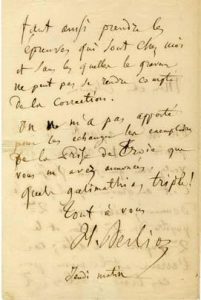 faut aussi prendre les
épreuves qui sont chez moi
et sans lesquelles le graveur
ne peut pas se rendre compte
de la correction.
On ne m'a pas apporté
pour les échanger les exemplaires
de la Prise de Troie que
vous m'avez annoncés,
quel galimathias triple!
Tout à vous
H. Berlioz
Jeudi matin